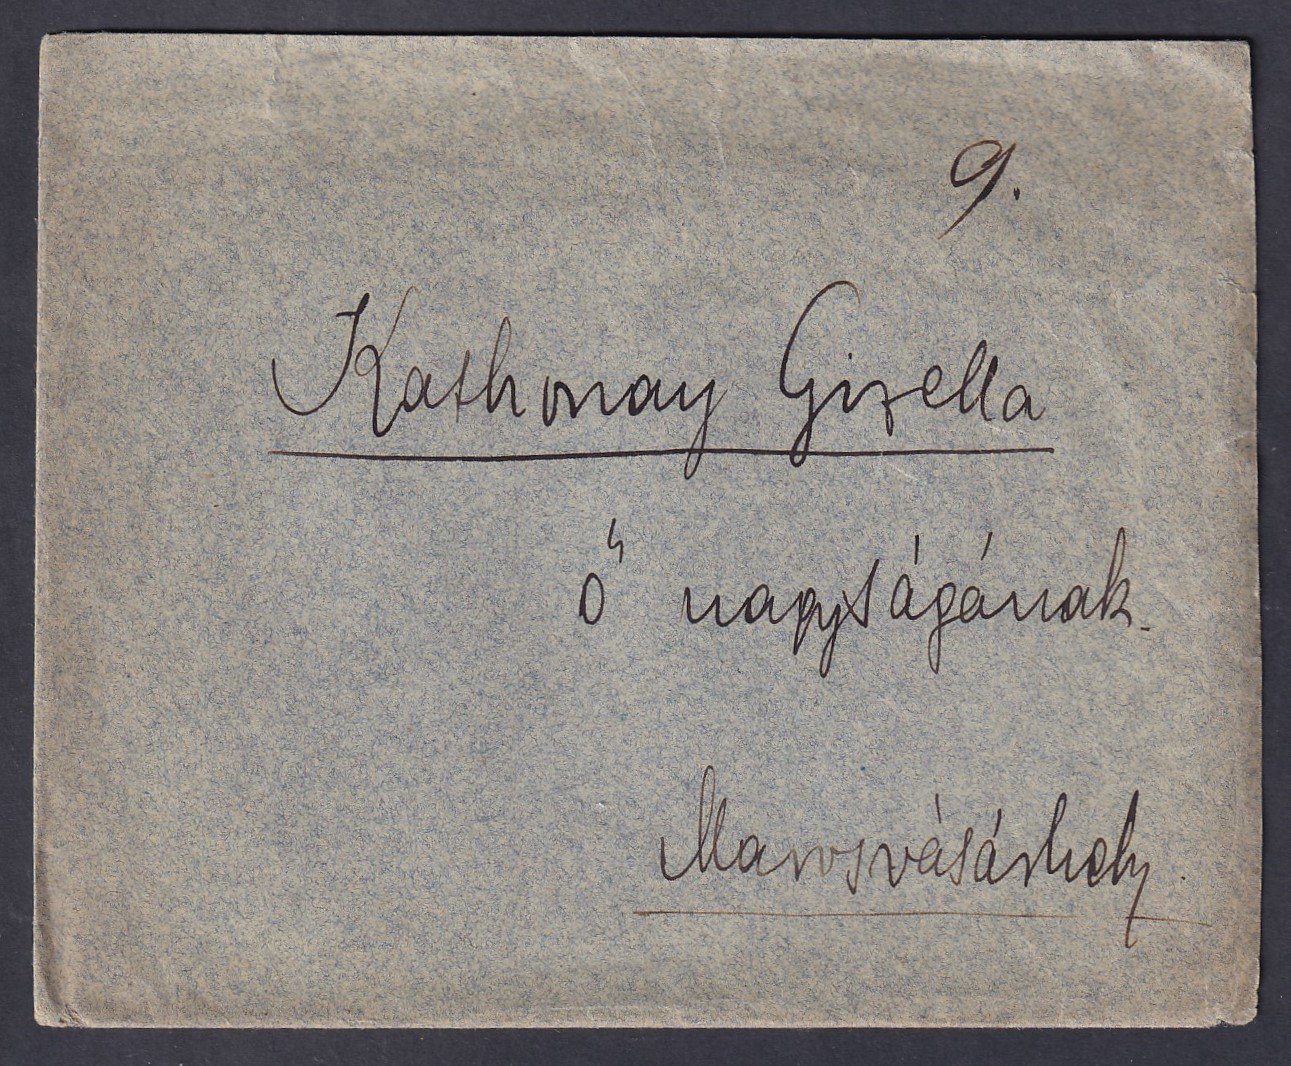 9.
Kathonay Gizella
Ő nagyságának.
Marosvásárhely.